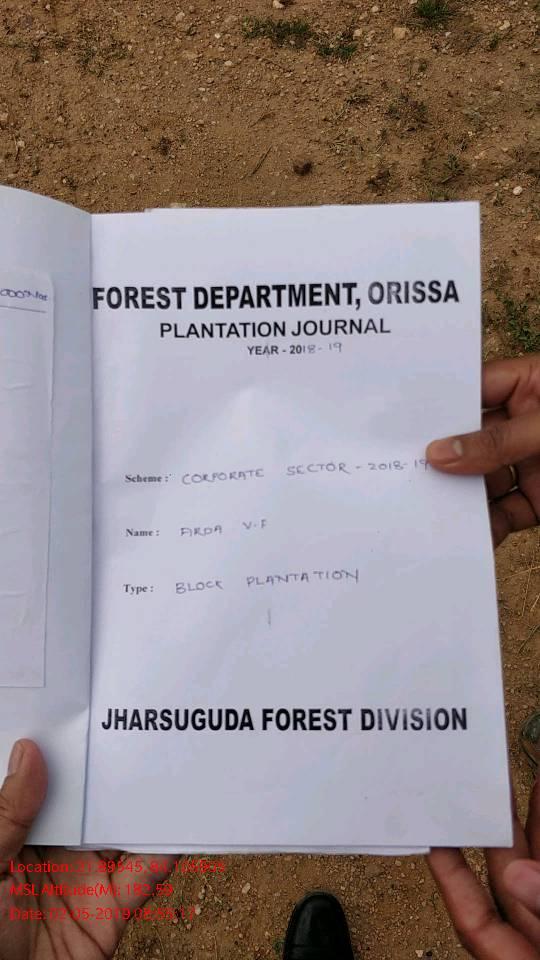 FOREST DEPARTMENT, ORISSA
PLANTATION JOURNAL
YEAR - 2018-19
Scheme : CORPORATE SECTOR - 2018-19
Name : ARDA V.F
Type : BLOCK PLANTATION
JHARSUGUDA FOREST DIVISION
Location:
MSL Altitude(M): 182.59
Date: 07-05-2019